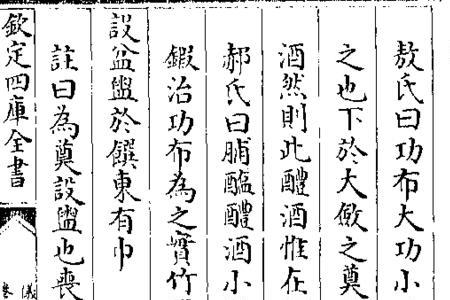 敖氏曰功布大功小
之也下於大斂之奠
酒然則此醴酒惟在
郝氏曰脯醢醴酒小
鍜治功布為之實竹
設盆盥於饌東有巾
註曰為奠設盥也喪
欽定四庫全書
儀
巻